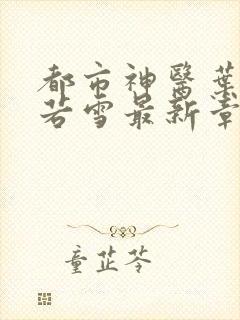 都市神醫葉
若雪最新章
童芷苓